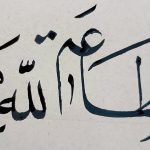 طاعة الله